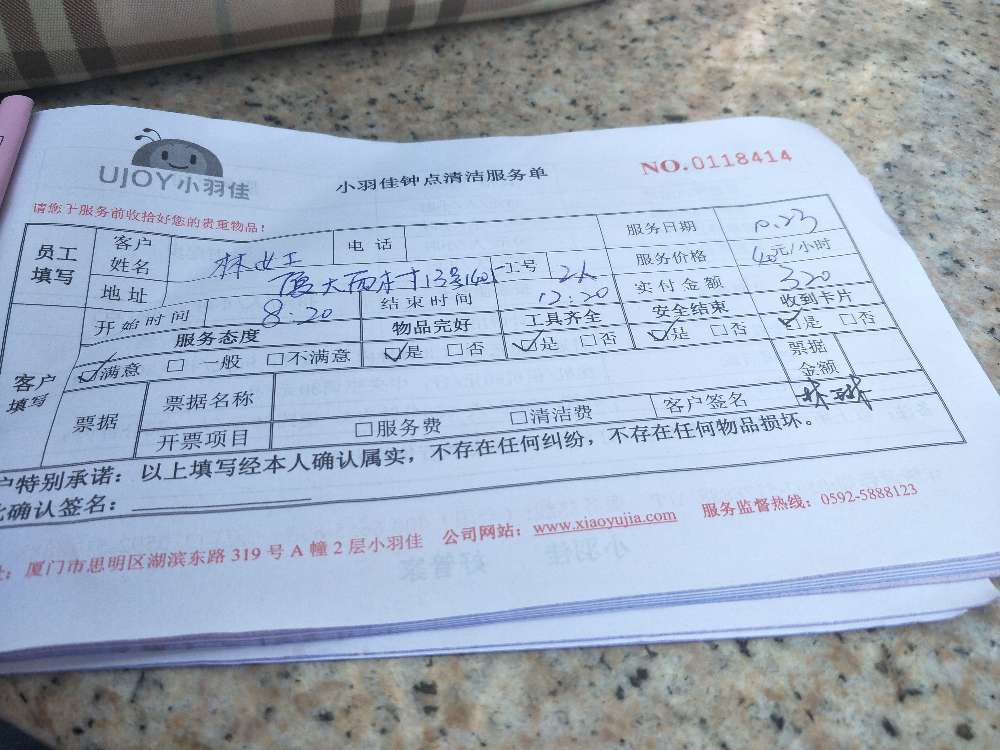 UJOY小羽佳
小羽佳钟点清洁服务单
NO.0118414
请您于服务前收拾好您的贵重物品!
员工填写 客户姓名 林 电话 服务日期 10.23
服务价格 40元/小时
地址 厦大西村 13号 工号 2人 实付金额 320
开始时间 8:20 结束时间 12:20
客户填写 服务态度 物品完好 工具齐全 安全结束 收到卡片
☑满意 □ 一般 □不满意 ☑是 □否 ☑是 □否 ☑是 □否 ☑是 □否
票据 票据名称 票据金额
开票项目 □服务费 □清洁费 客户签名
户特别承诺：以上填写经本人确认属实，不存在任何纠纷，不存在任何物品损坏。
确认签名：
厦门市思明区湖滨东路 319 号 A 幢 2 层小羽佳 公司网站：www.xiaoyujia.com 服务监督热线：0592-5888123